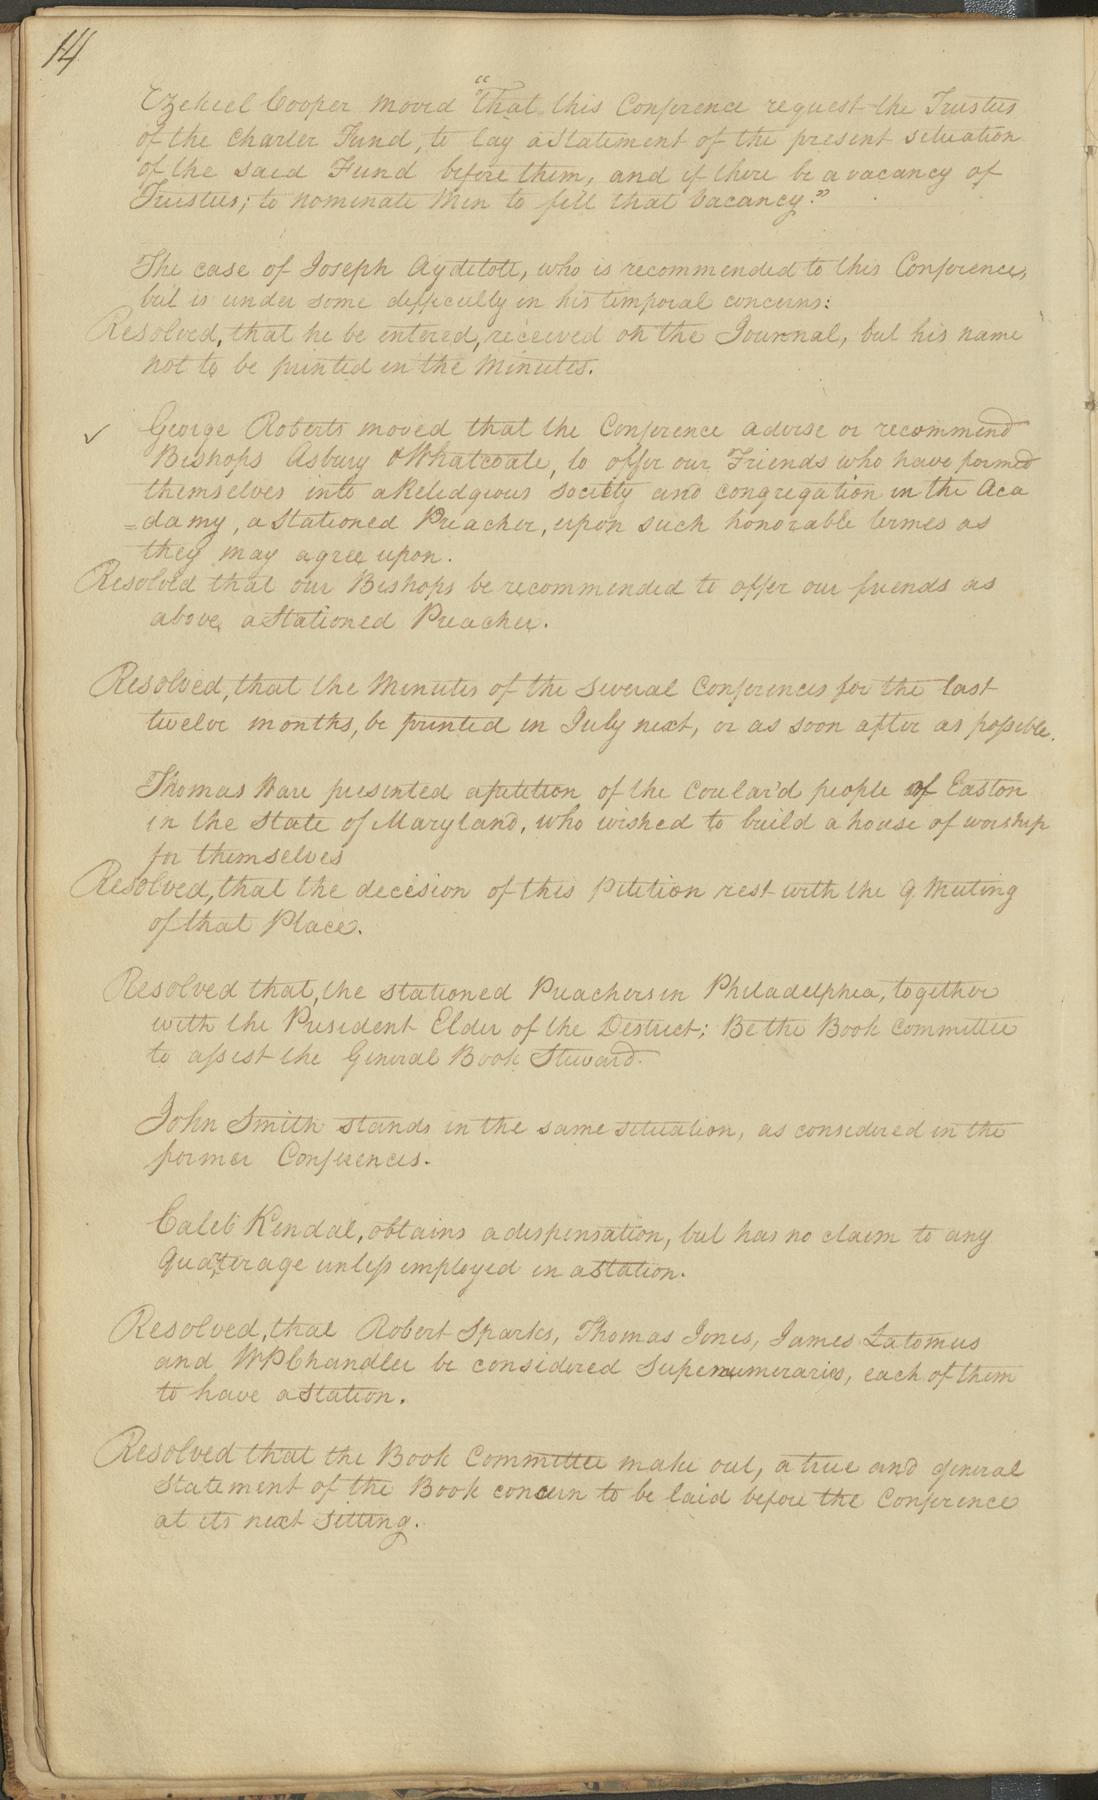 14
Ezekiel Cooper moved "that this Conference request the Trustees
of the Charter Fund, to lay a Statement of the present situation
of the said Fund before them, and if there be a vacancy of
Trustees; to nominate Men to fill that Vacancy."
The case of Joseph Aydelott, who is recommended to this Conference,
but is under some difficulty in his temporal concerns:
Resolved, that he be entered, received on the Journal, but his name
not to be printed in the Minutes.
✓ George Roberts moved that the Conference advise or recommend
Bishops Asbury & Whatcoate, to offer our Friends who have formed
themselves into a Reledgeous Society and congregation in the Aca
=damy, a Stationed Preacher, upon such honorable termes as
they may agree upon.
Resolved that our Bishops be recommended to offer our friends as
above, a Stationed Preacher.
Resolved, that the Minutes of the several Conferences for the last
twelve months, be printed in July next, or as soon after as possible.
Thomas Ware presented a petition of the Coular'd people of Easton
in the State of Maryland, who wished to build a house of worship
for themselves
Resolved, that the decesion of this Petition rest with the Q. Meeting
of that Place.
Resolved that, the stationed Preachers in Philadelphia, together
with the President Elder of the District; Be the Book Committee
to assist the General Book Steward.
John Smith stands in the same situation, as considered in the
former Conferences.
Caleb Kendal, obtains a dispensation, but has no claim to any
Quarterage unless employed in a Station.
Resolved, that Robert Sparks, Thomas Jones, James Latomus
and WP Chandler be considered Supernumeraries, each of them
to have a Station.
Resolved that the Book Committee make out, a true and general
Statement of the Book concern to be laid before the Conference
at its next Sitting.